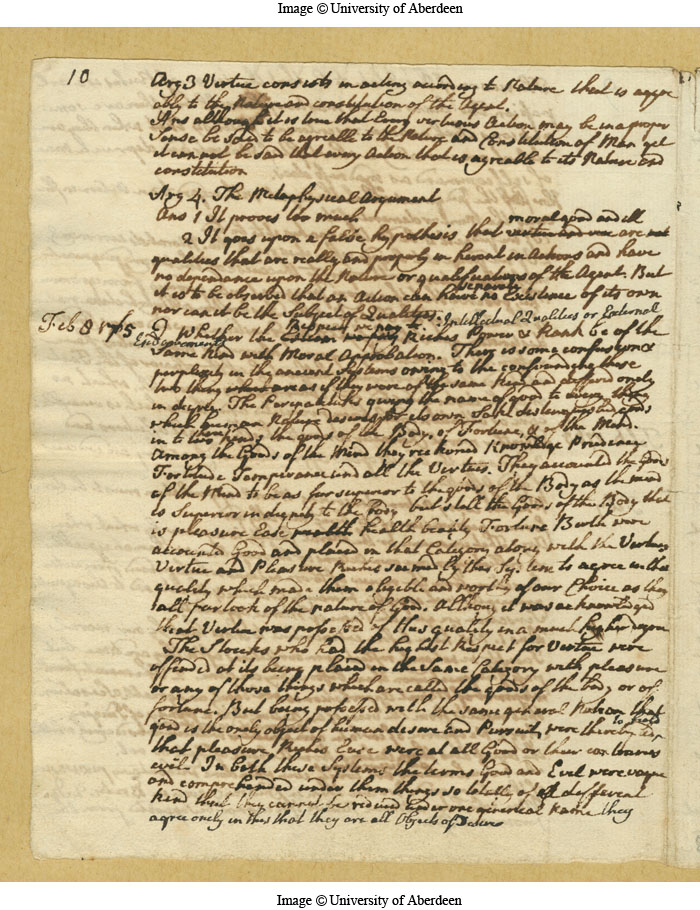 Image © University of Aberdeen
10
Arg 3 Virtue consists in acting according to Nature that is agree
ably to the Nature and constitution of the Agent.
Ans although it is true that Every virtuous Action may be in a proper
Sense be said to be agreable to the Nature and Constitution of Man yet
it can not be said that every Action that is agreable to its Nature and
constitution
Arg 4. The Metaphysical Argument
Ans 1 It proves too much
moral good and ill
2 It goes upon a false hypothesis that virtue and vice are not
qualities that are really and properly inherent in Actions and have
no dependance upon the Nature or qualifications of the Agent. But
it is to be observed that an Action can have no Existence of its own
nor can it be the Subject of Qualities.
Feb 8 1765
Intellectual Qualities or External
Endowments
Respect we pay to
Q Whether the Esteem Riches Power & Rank be of the
Same Kind with Moral Approbation. There is some confusion &
perplexity in the ancient Systems owing to the confounding these
two things as if they were of the same Kind and differed onely
in degree. The Peripateticks giving the name of good to every thing
which human Nature desires for its own Sake distinguished
in to three heads the goods of the Body, of Fortune, & of the Mind.
Among the Goods of the Mind they reckoned Knowledge Prudence
Fortitude Temperance and all the Virtues. They accounted the Goods
of the Mind to be as far superior to the goods of the Body as the mind
is Superior in dignity to the Body but still the Goods of the Body that
is pleasure Ease health beauty Fortune Birth were
accounted Good and placed in that Category along with the Virtues
Virtue and Pleasure Riches seemed by this System to agree in that
quality which made them eligible and worthy of our Choice as they
all partook of the nature of Good. Althoug it was acknowledged
that Virtue was possessed of this quality in a much higher degree
The Stoicks who had the highest Respect for Virtue were
offended at its being placed in the Same Category with pleasure
or any of those things which are called the goods of the body or of
fortune. But being possessed with the same general Notion that
good is the onely object of human desire and Pursuit, were thereby
to hold
that pleasure, Riches Ease were at all Good or their contraries
evil. In both these Systems the terms Good and Evil were vague
and comprehended under them things so totally of a different
Kind that they cannot be reduced under one general name they
agree onely in this that they are all Objects of Desire
Image © University of Aberdeen